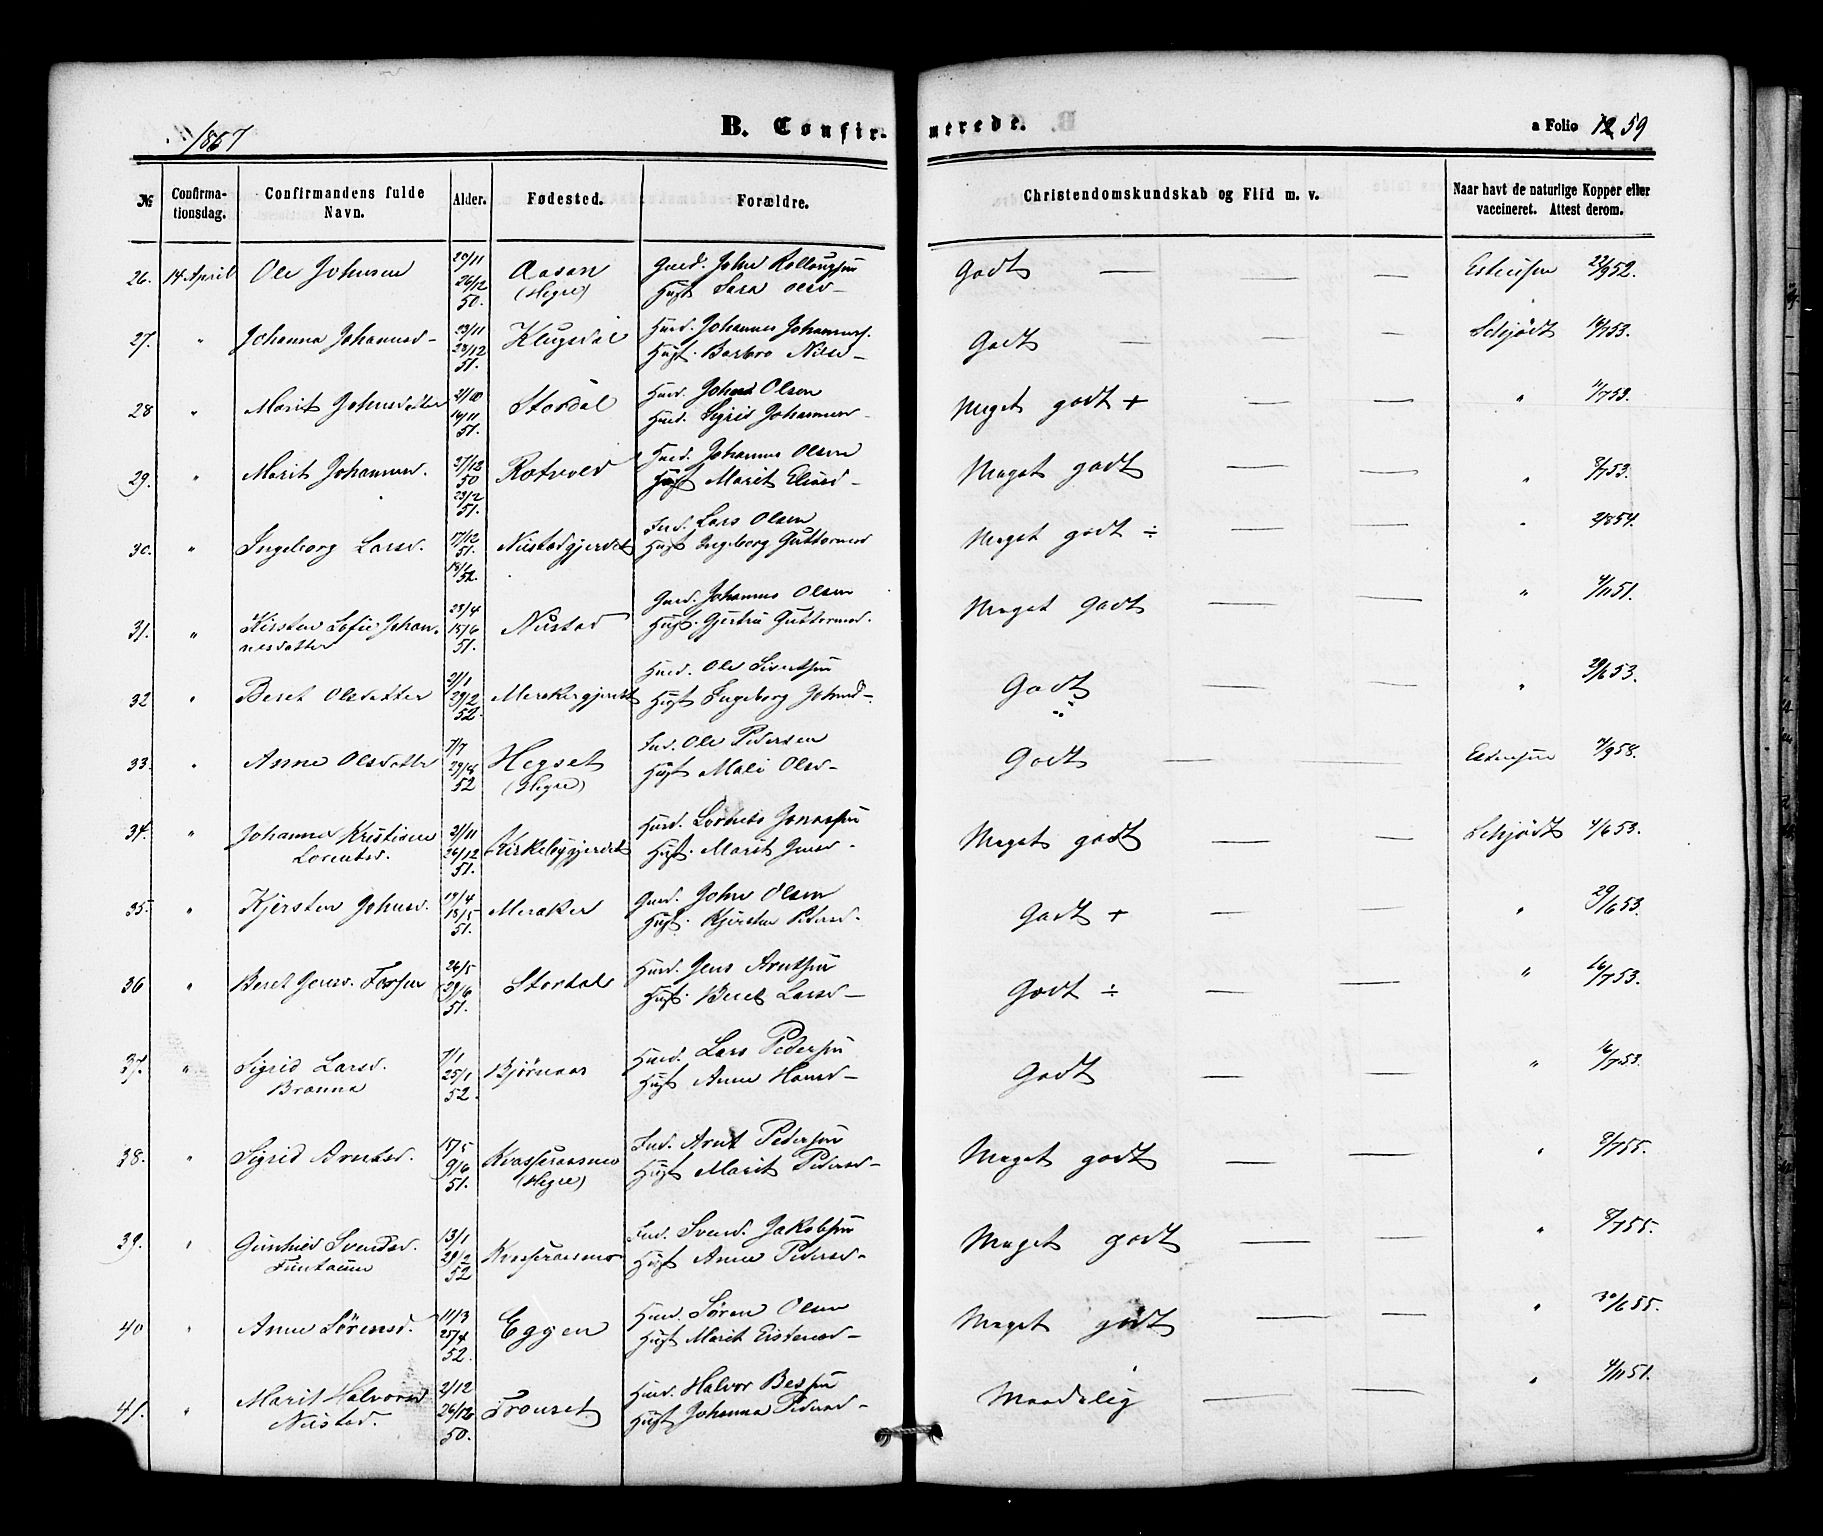 1867
B. Confirmerede.
a Folio 12 59
№
Confirmationsdag.
Confirmandens fulde Navn.
Alder.
Fødested.
Forældre.
Christendomskundskab og Flid m. v.
Naar havt de naturlige Kopper eller vaccineret. Attest derom.
26. 14 April Ole Johnsen 20/11 26/12 50. Aasan (Hegre) Gmd. John Rollaugsen Hust. Sara Olsd— Godt — — — Estensen 22/9 52.
27. " Johanna Johannesd— 23/11 28/12 51. Klugsdal Hmd. Johannes Johanness. Hust. Barbro Nilsd— Godt — — — Schjødt 18/7 53.
28 " Marit Johnsdatter 2/10 14/11 51. Stordal Hmd. John Olsen Hust. Sigrid Johannesd— Meget godt + — — " 11/7 53.
29. " Marit Johannesd. 27/12 50 23/2 51. Rotvold Hmd. Johannes Olsen Hust Marit Elisesd— Meget godt — — " 8/7 53.
30. " Ingeborg Larsd. 17/12 51. 18/1 52. Nustadgjerdet Ind. Lars Olsen Hust Ingeborg Guttormsd Meget godt ÷ — — " 2/8 54.
31. " Kirsten Sofie Johannesdatter 23/4 15/6 51. Nustad Gmd. Johannes Olsen Hust. Gjertru Guttormsd. Meget Godt — — " 4/11 51.
32 " Beret Olsdatter 2/1 29/2 52. Merakergjerdet Hmd. Ole Sivertsen Hust Ingeborg Johnsd— Godt — — " 29/6 53.
33. " Anne Olsdatter 7/7 29/8 52 Hegset (Hegre) Ind. Ole Pedersen Hust Mali Olsd— Godt — — Estensen 7/9 58.
34. " Johanna Kristiane Lorentsd. 2/11 26/12 51. Kirkebygjerdet Hmd. Lorents Jonassen Hust. Marit Jensd— Meget godt — — Schjødt 4/6 53.
35. " Kjersten Johnsd. 19/4 18/5 51. Meraker Gmd. John Olsen Hust. Kjersten Pedersd— Godt + — — " 29/6 53.
36 " Beret Jensd. 26/5 29/6 51. Stordal Hmd. Jens Arntsen Hust. Beret Larsd— Godt ÷ — — " 16/7 53.
37. " Sigrid Larsd. Brænna 7/1 25/1 52. Bjørnaas Hmd. Lars Pedersen Hust Anne Hansd— Godt — — " 16/7 53.
38. " Sigrid Arntsd. 15/5 9/6 51. (Hegre) Ind. Arnt Pedersen Hust Marit Pedersd— Meget godt — — " 8/7 55.
39. " Gunhild Svendsd. 13/1 29/2 52 Ind. Svend Jakobsen Hust Anne Pedersd— Meget godt — — " 8/7 55.
40 " Anne Sørensd. 11/3 25/4 52. Eggen Hmd. Søren Olsen Hust Marit Eistensd— Meget godt — — " 30/6 55.
41. " Marit Halvorsd Nustad. 2/12 26/12 50. Fronset Hmd. Halvor Bessen Hust Johanna Pedersd— Maadelig — — " 4/11 51.